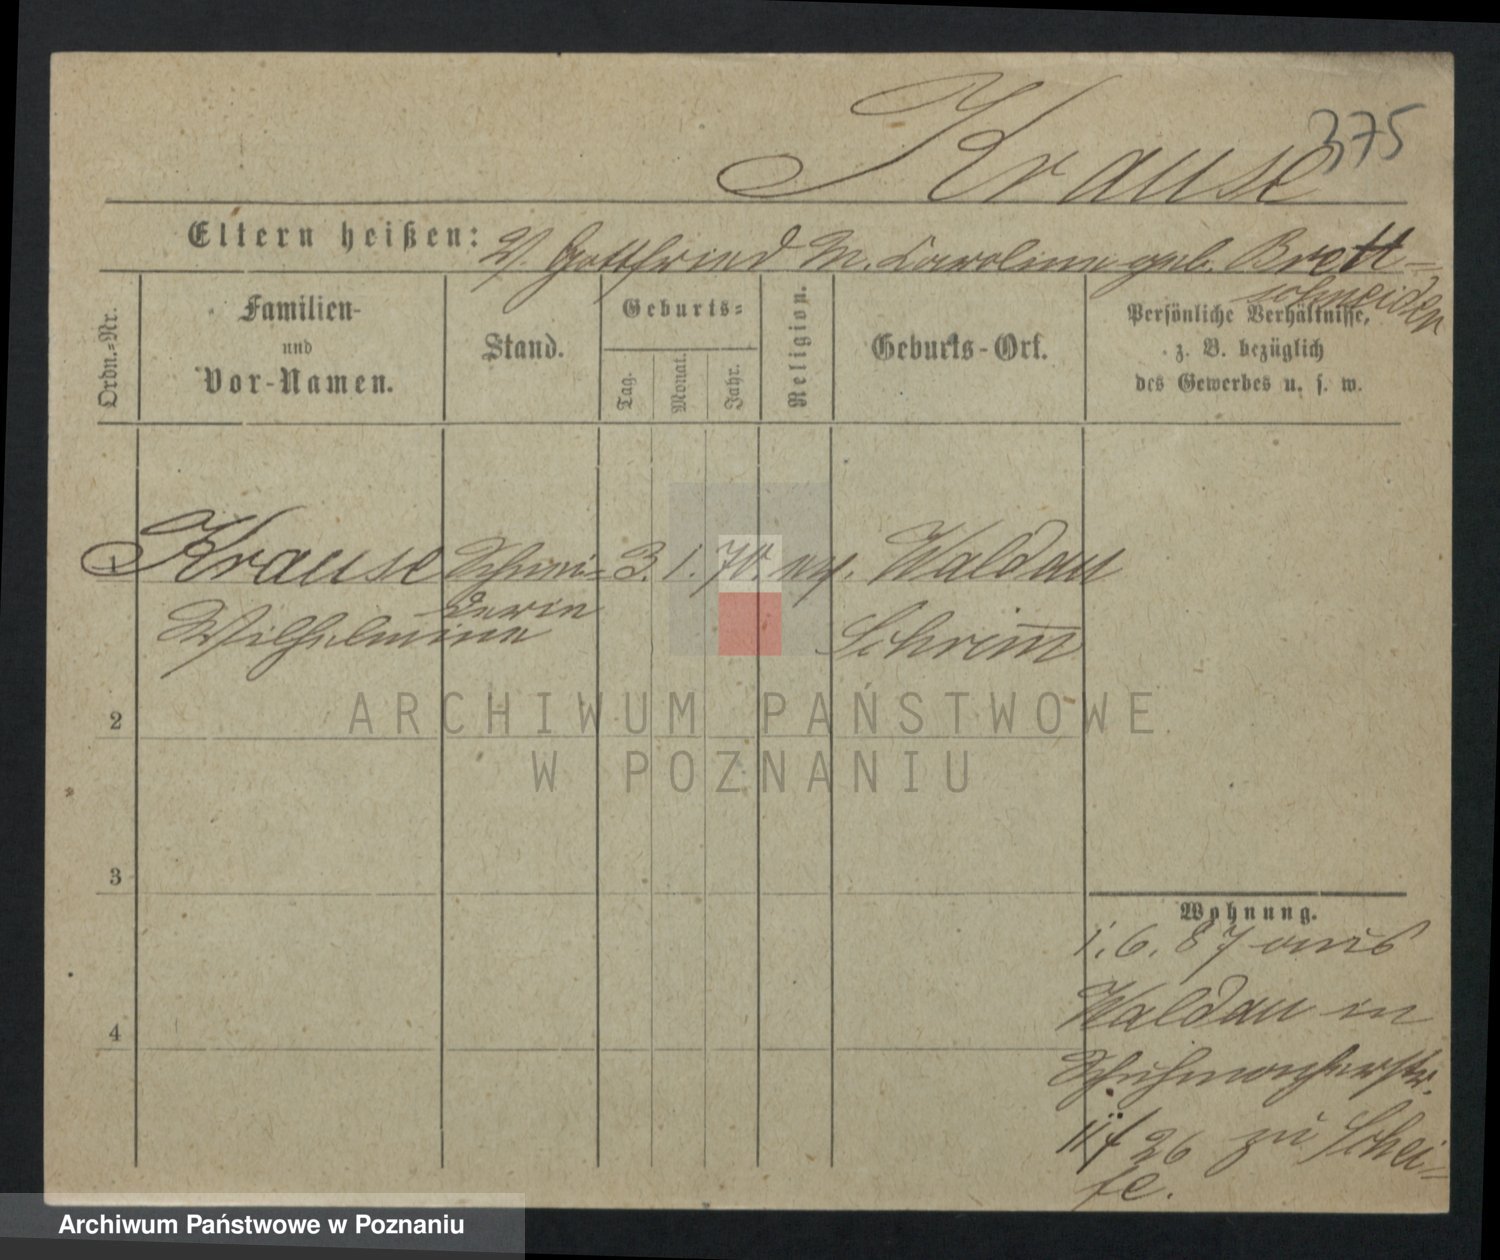 Krause
375
Eltern heißen: V. Gottfried M. Caroline geb. Brett-
schneider
Ordn.-Nr.
Familien-
und
Vor-Namen.
Stand.
Geburts-
Tag.
Monat.
Jahr.
Religion.
Geburts-Ort.
Persönliche Verhältnisse,
z. B. bezüglich
des Gewerbes u. s. w.
1 Krause Schnei- 3. 1. 70. ev. Waldau
derin
Wilhelmine Schrimm
2
3
4
Wohnung.
1. 6. 87 aus
Waldau in
Schuhmacherstr.
26 zu Schei-
fe.
ARCHIWUM PAŃSTWOWE
W POZNANIU
Archiwum Państwowe w Poznaniu